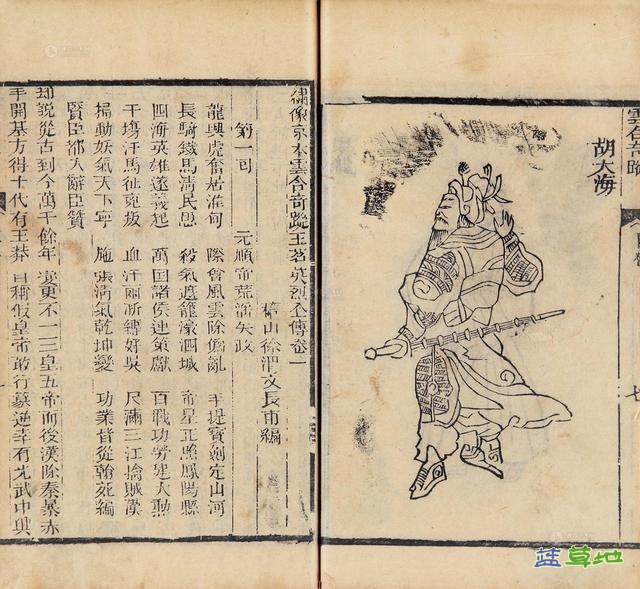 雲合奇蹤
胡大海
繡像京本雲合奇蹤玉茗英烈全傳卷一
稽山徐渭文長甫編
第一回 元順帝荒淫失政
龍興虎奮居淮甸 際會風雲除僞亂 手提寶劍定山河
長騎鐵馬淸民患 殺氣遮籠濠泗城 帝星正照鳳陽縣
四海英雄逐義起 萬國諸侯連策獻 百戰功勞建大勳
汗馬征 血 雨 吳 尺 三江擒賊漢
掃動妖氣天下寧 施張淸氣乾坤變 功業皆從翰苑編
賢臣都入辭臣贊
却說從古到今萬千餘年變更不一三皇五帝而後漢除秦暴赤
手開基方得十代有王莽自稱假皇帝敢行篡逆幸有光武中興
蓝草地